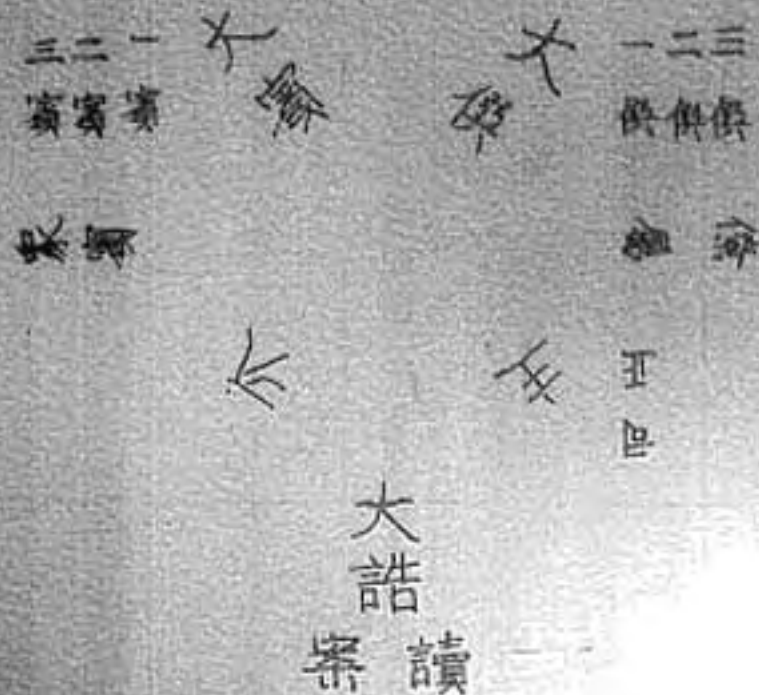 三賓
二賓
一賓
大賓
大僎
一僎
二僎
三僎
眾賓
介
主
司正
大誥
讀
案